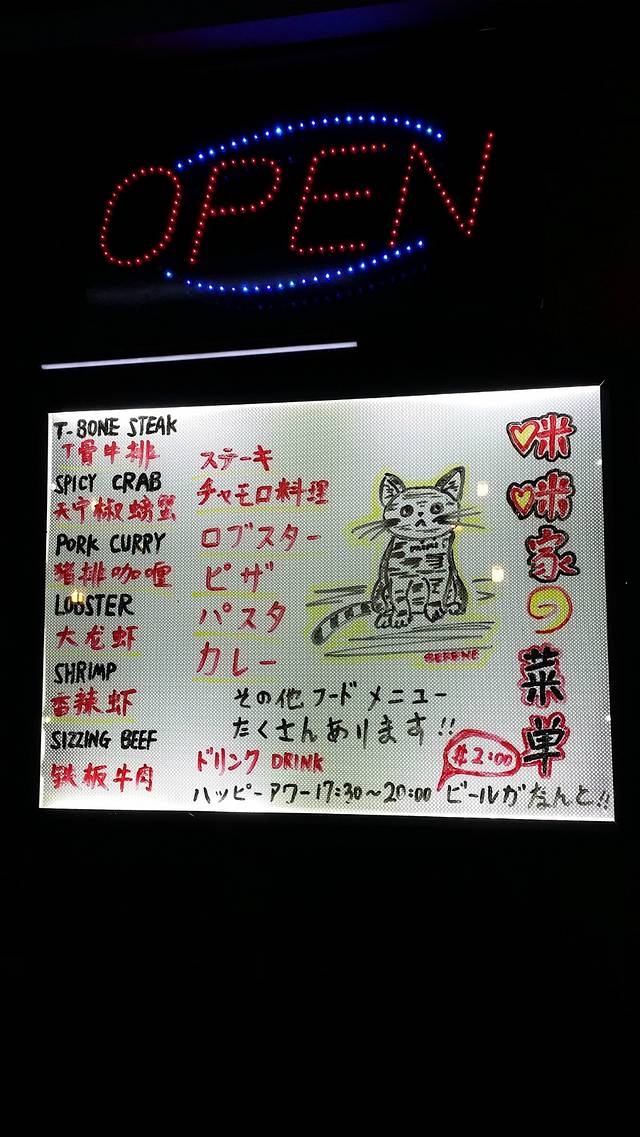 OPEN
T-BONE STEAK
T骨牛排
SPICY CRAB
天宁椒螃蟹
PORK CURRY
猪排咖喱
LOBSTER
大龙虾
SHRIMP
香辣虾
SIZZING BEEF
铁板牛肉
ステーキ
チャモロ料理
ロブスター
ピザ
パスタ
カレー
その他フードメニュー
たくさんあります!!
ドリンク DRINK
ハッピーアワー17:30～20:00 ビールがなんと!!
$2:00
mimi
SERENE
咪咪家の菜单